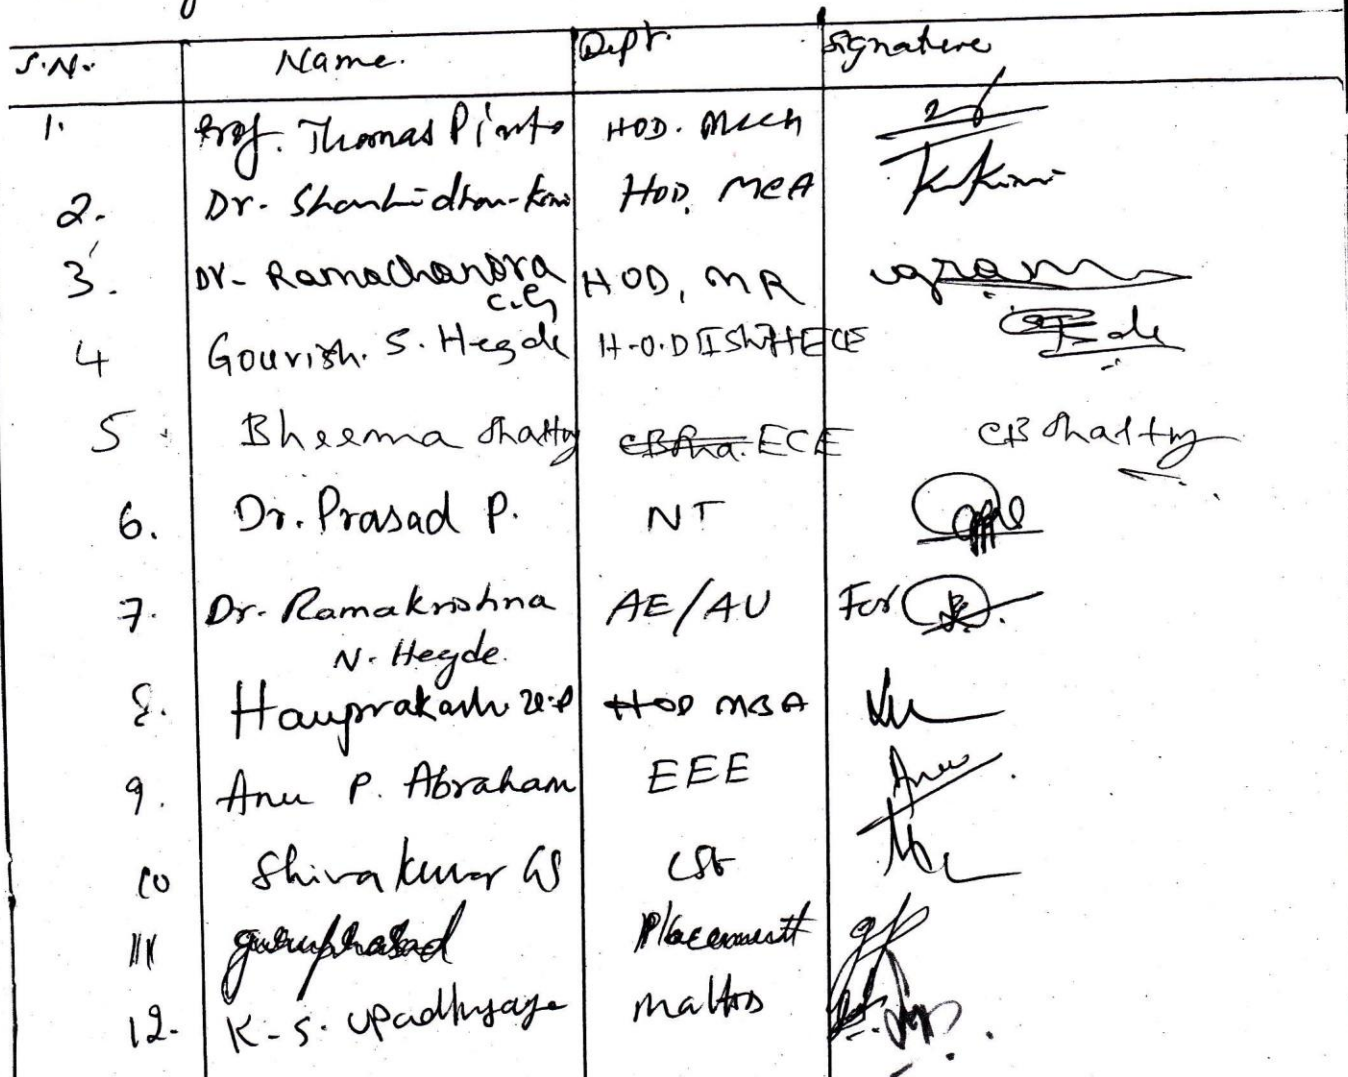 S.N. Name. Dept. Signature
1. Prof. Thomas Pinto HOD. Mech
2. Dr. HOD, MCA
3. Dr. Ramachandra HOD, MR
C.G
4 Gourish. S. Hegde H.O.D ECE
5 Bheema Shatty ECE CB Shatty
6. Dr. Prasad P. NT
7. Dr. Ramakrishna AE/AU For
N. Hegde.
8. HOD MBA
9. Anu P. Abraham EEE Anu
10 Shivakumar GS CSE
11 guruprasad Placement
12. K-S. Upadhyaya Maths